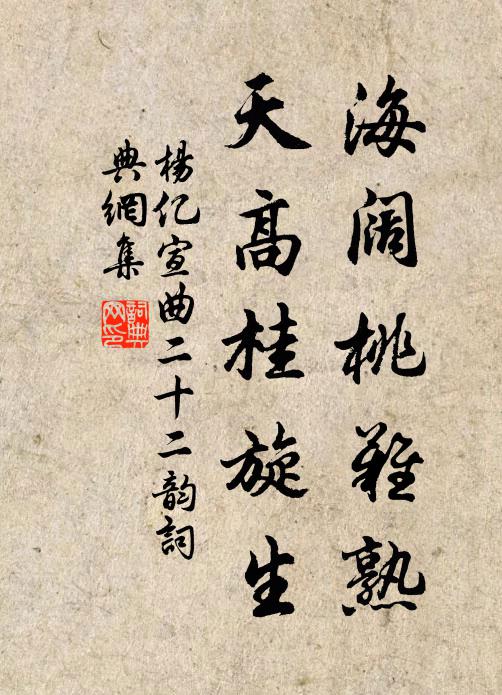 海阔桃难熟
天高桂旋生
楊亿宣曲二十二韵詞
典網集
詞典网印